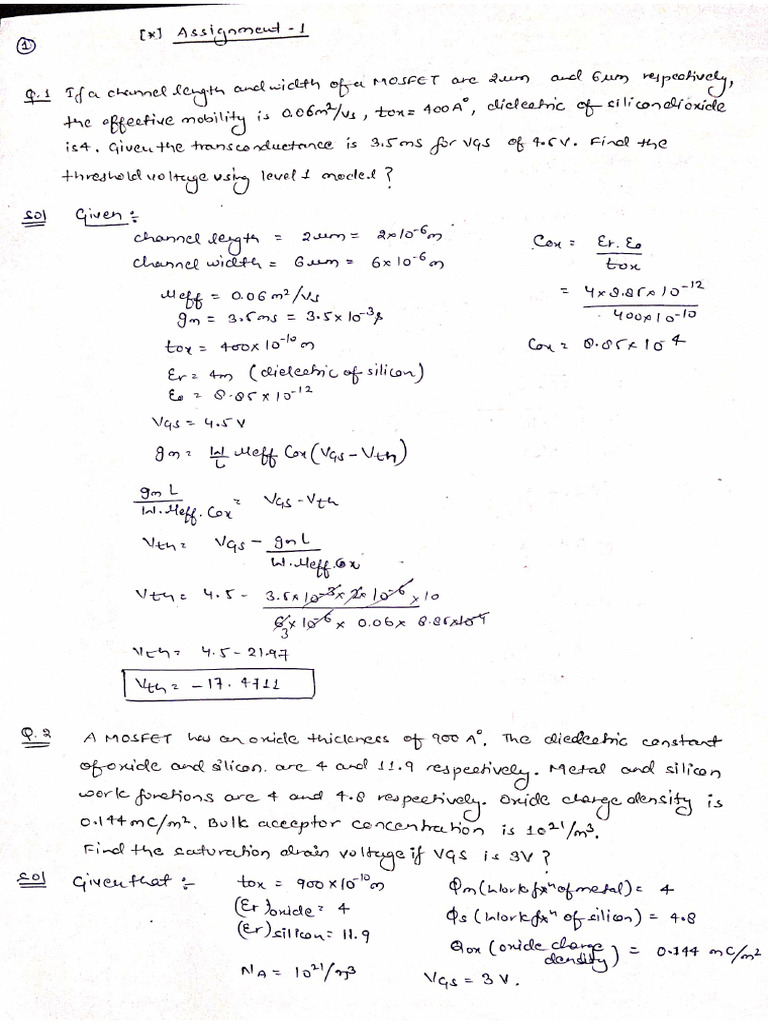 ①
[*] Assignment - 1
Q.1 If a channel length and width of a MOSFET are 2um and 6um respectively,
the effective mobility is 0.06m²/vs, tox = 400A°, dielectric of silicondioxide
is 4. Given the transconductance is 3.5ms for VGS of 4.5V. Find the
threshold voltage using level 1 model?
Sol Given :-
channel length = 2um = 2x10⁻⁶m
channel width = 6um = 6x10⁻⁶m
Meff = 0.06m²/vs
gm = 3.5ms = 3.5x10⁻³s
tox = 400x10⁻¹⁰m
Er = 4m (dielectric of silicon)
E₀ = 8.85x10⁻¹²
VGS = 4.5V
Cox = Er. E₀ / tox
= 4x8.85x10⁻¹² / 400x10⁻¹⁰
Cox = 8.85x10⁻⁴
gm = W/L Meff Cox (VGS - Vth)
gm L / W. Meff. Cox = VGS - Vth
Vth = VGS - gm L / W. Meff. Cox
Vth = 4.5 - 3.5x10⁻³x2x10⁻⁶x10 / 6x10⁻⁶x0.06x8.85x10⁻⁴
3
Vth = 4.5 - 21.97
Vth = -17.4711
Q.2 A MOSFET has an oxide thickness of 900 A°. The dielectric constant
of oxide and silicon. are 4 and 11.9 respectively. Metal and silicon
work functions are 4 and 4.8 respectively. Oxide charge density is
0.144mC/m². Bulk acceptor concentration is 10²¹/m³.
Find the saturation drain voltage if VGS is 3V?
Sol Given that :-
tox = 900x10⁻¹⁰m
(Er)oxide = 4
(Er)silicon = 11.9
NA = 10²¹/m³
Φm (Work fxⁿ of metal) = 4
Φs (Work fxⁿ of silion) = 4.8
Qox (oxide charge density) = 0.144 mC/m²
VGS = 3V.